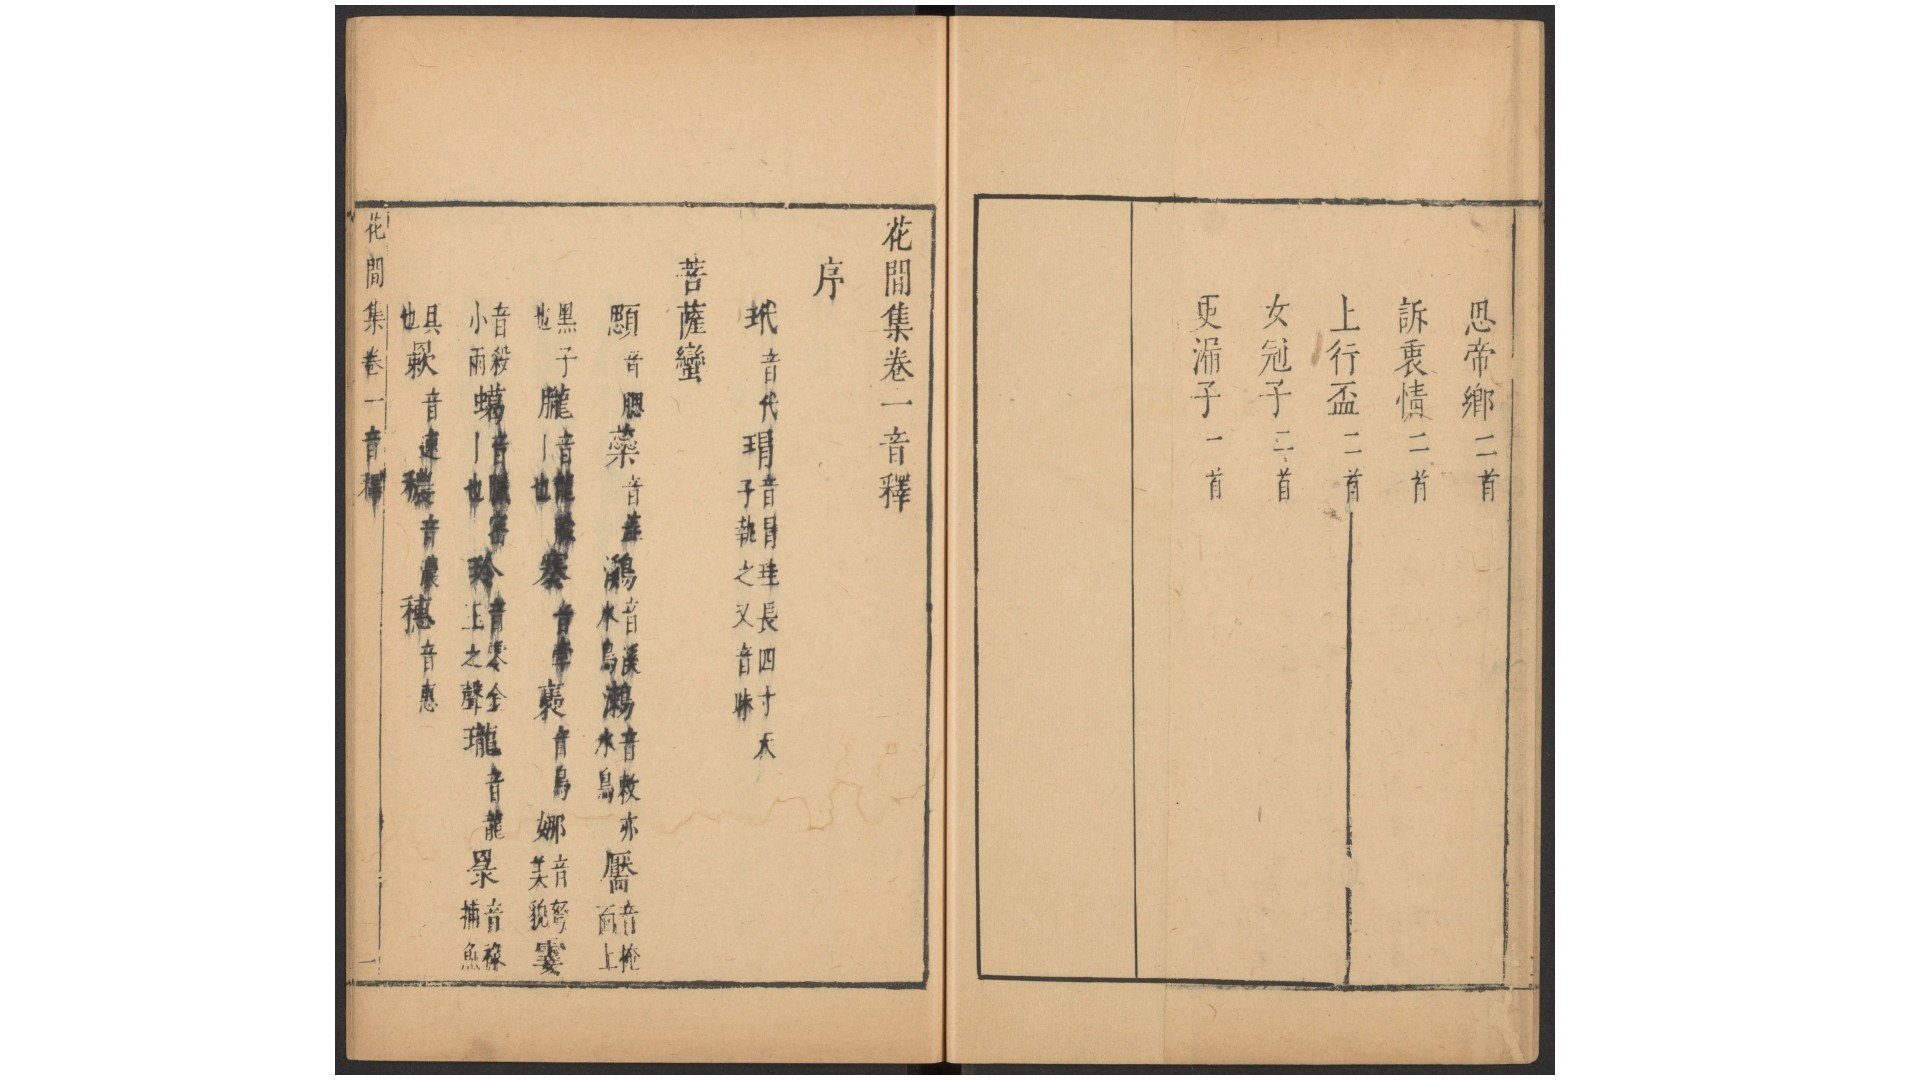 思帝鄉二首
訴衷情二首
上行盃二首
女冠子二首
更漏子一首
花間集卷一音釋
序
玳音代瑁音冒珪長四寸天子執之又音昩
菩薩蠻
顋音腮蘂音鸂音溪水鳥鷘音敕亦水鳥靨音掩面上
黑子也朧音龍朦丨也褰音牽裊音鳥娜音弩美貌霎
音殺小雨音丨也玲音零金玉之聲瓏音龍䍡音祿捕魚
具也音速穠音濃穗音惠
花間集卷一音釋 一